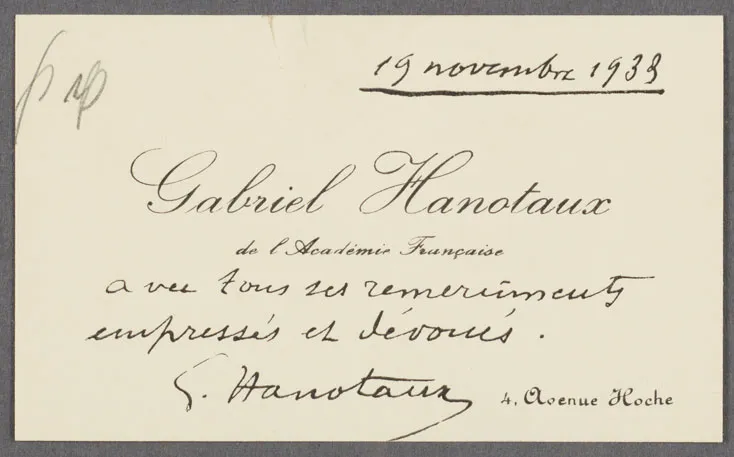 19 novembre 1933
Gabriel Hanotaux
de l'Académie Française
avec tous ses remerciments
empressés et dévoués.
G. Hanotaux
4, Avenue Hoche